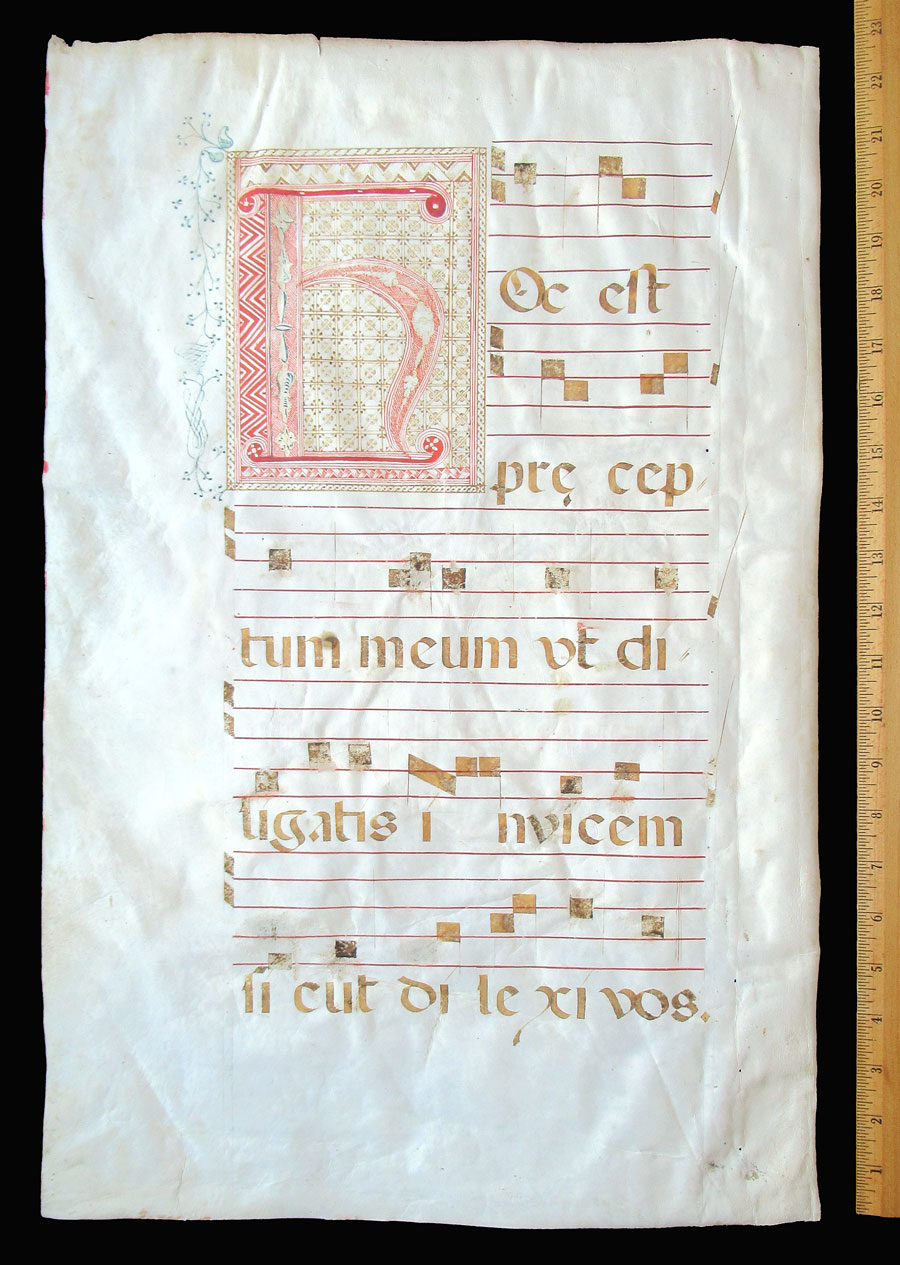 hOc est
prę cep
tum meum vt di
ligatis i nvicem
si cut di le xi vos.
23
22
21
20
19
18
17
16
15
14
13
12
11
10
9
8
7
6
5
4
3
2
1